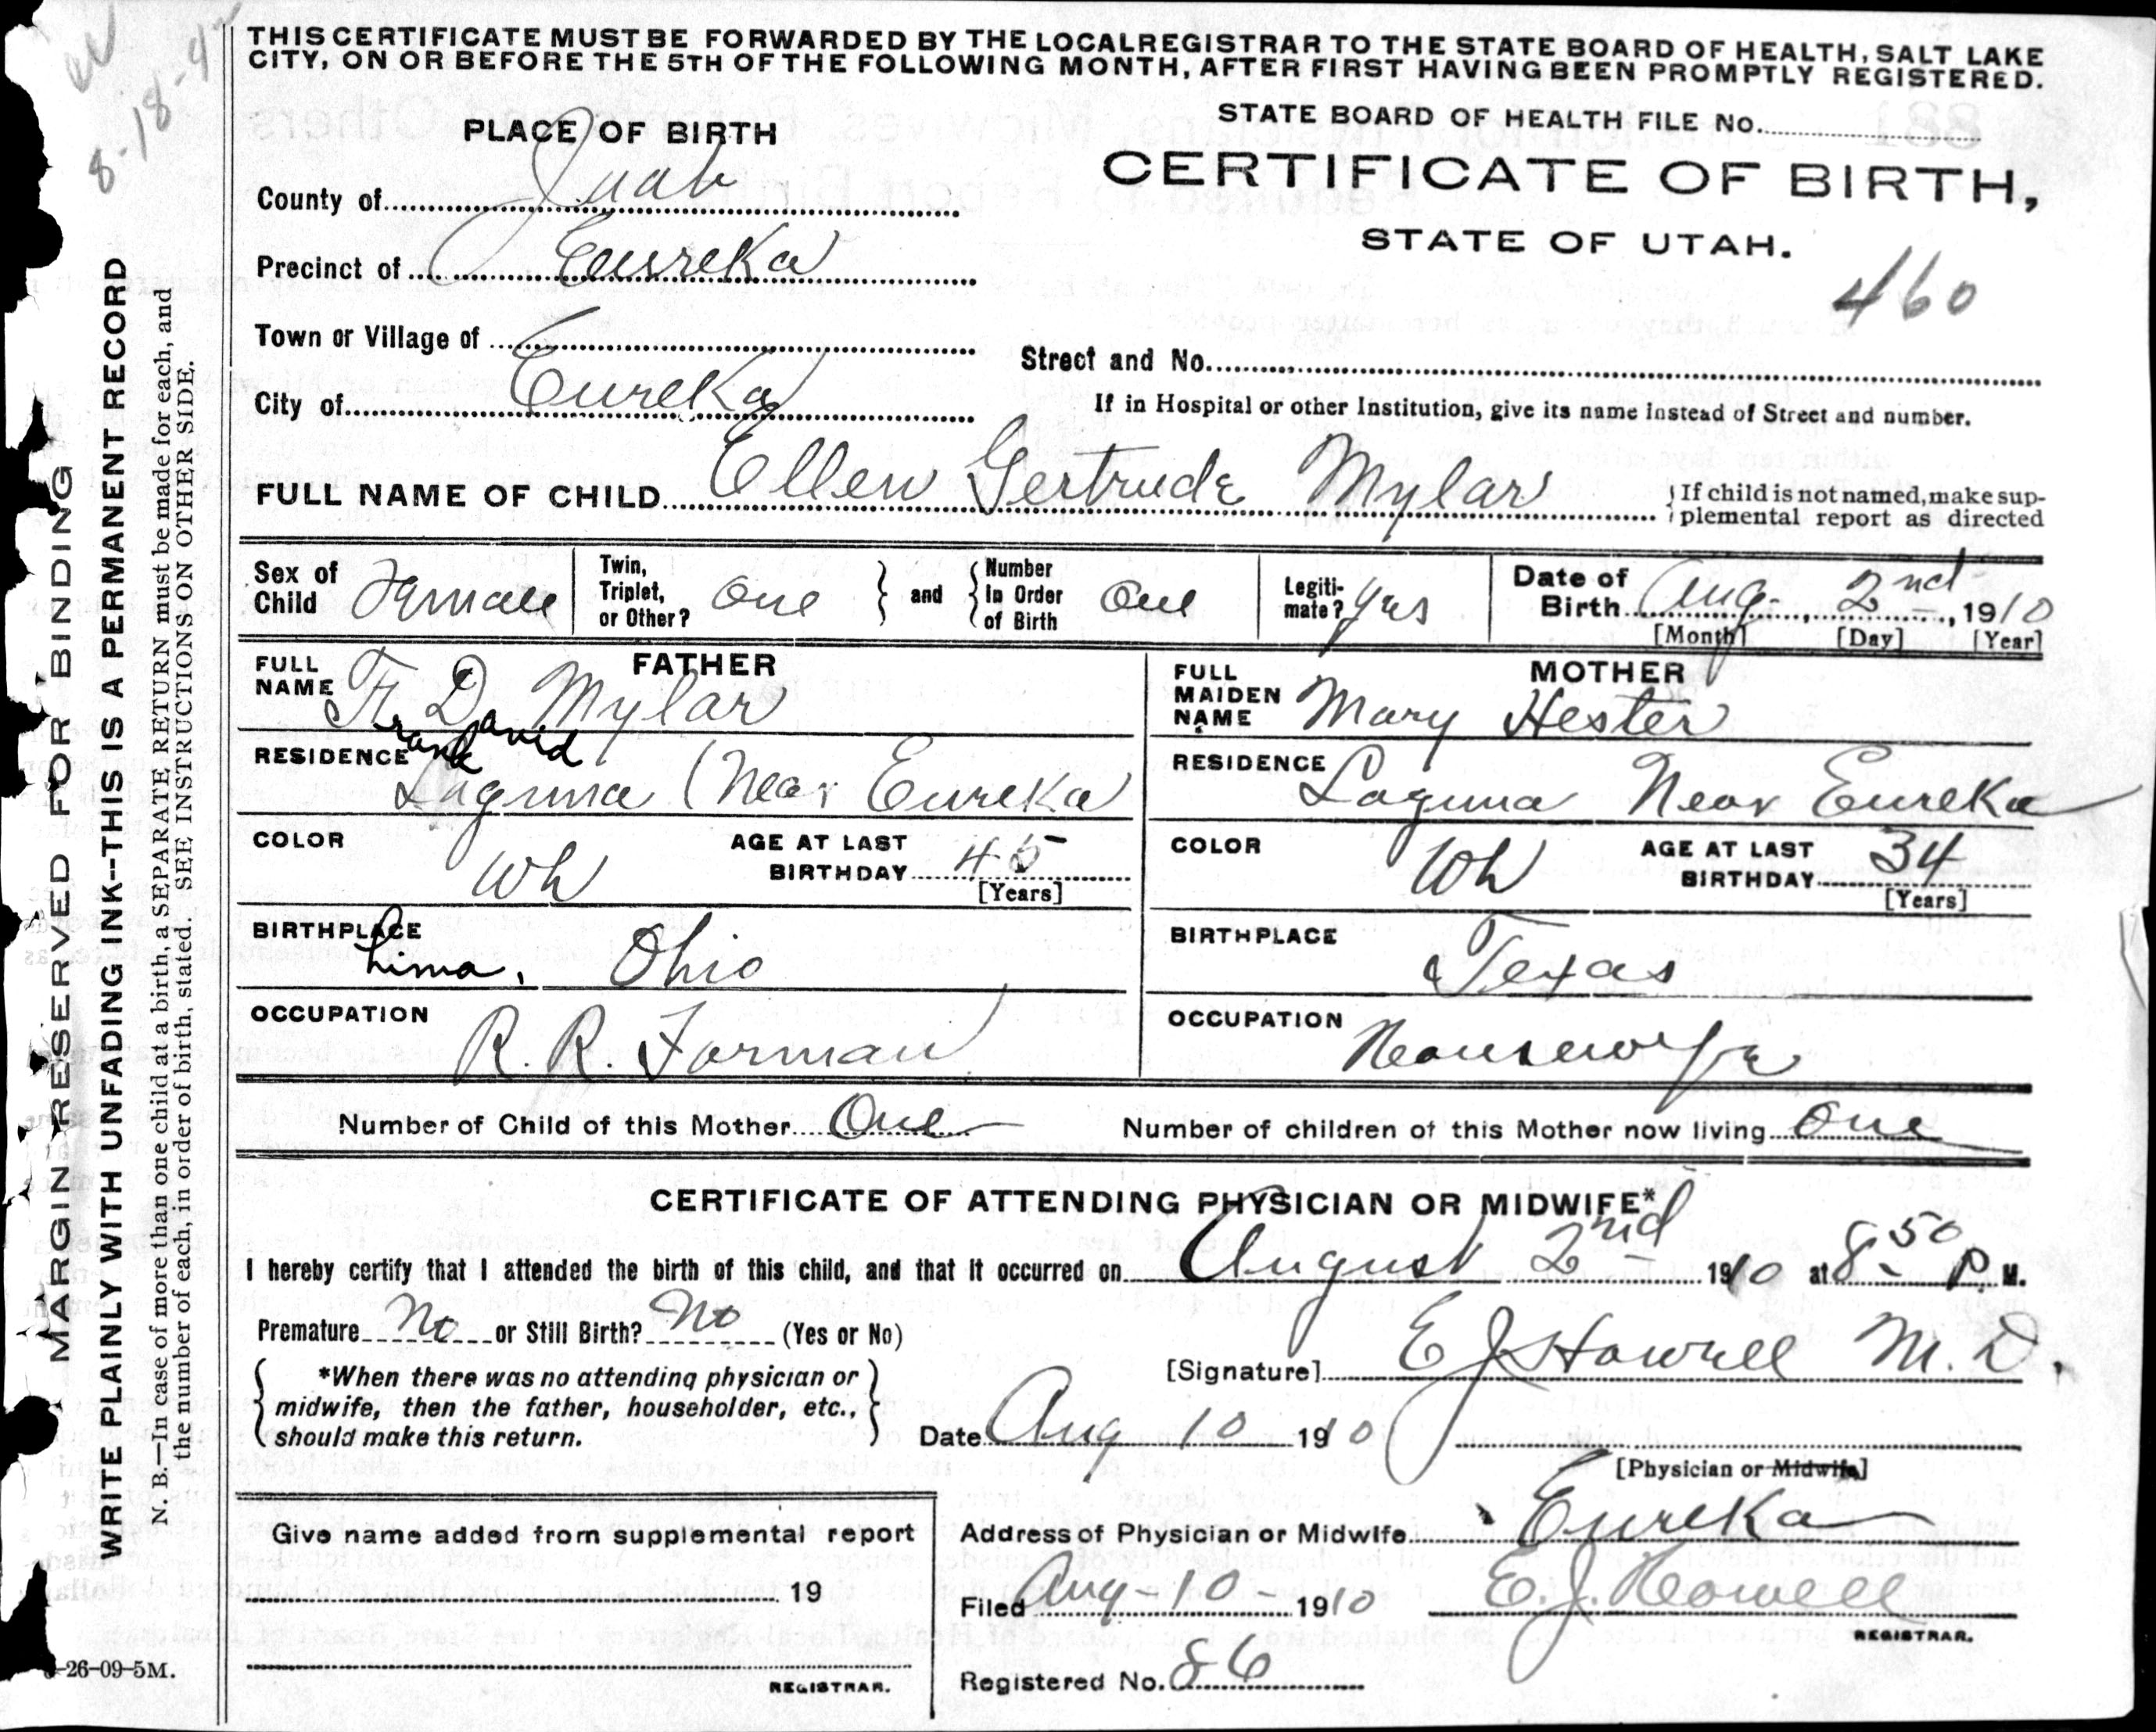 THIS CERTIFICATE MUST BE FORWARDED BY THE LOCAL REGISTRAR TO THE STATE BOARD OF HEALTH, SALT LAKE
CITY, ON OR BEFORE THE 5TH OF THE FOLLOWING MONTH, AFTER FIRST HAVING BEEN PROMPTLY REGISTERED.
8-18-4
PLACE OF BIRTH
STATE BOARD OF HEALTH FILE No.
County of Juab
CERTIFICATE OF BIRTH,
STATE OF UTAH.
Precinct of Eureka
460
Town or Village of
Street and No.
City of Eureka
If in Hospital or other Institution, give its name instead of Street and number.
FULL NAME OF CHILD Ellen Gertrude Mylar
If child is not named, make sup-
plemental report as directed
Sex of Child Female
Twin, Triplet, or Other? One and Number In Order of Birth One
Legiti-mate? Yes
Date of Birth Aug. 2nd, 1910
[Month] [Day] [Year]
FATHER
FULL NAME F. D. Mylar
Frank David
RESIDENCE Laguna (Near Eureka
COLOR Wh
AGE AT LAST BIRTHDAY 45
[Years]
BIRTHPLACE Lima, Ohio
OCCUPATION R. R. Forman
MOTHER
FULL MAIDEN NAME Mary Hester
RESIDENCE Laguna Near Eureka
COLOR Wh
AGE AT LAST BIRTHDAY 34
[Years]
BIRTHPLACE Texas
OCCUPATION Housewife
Number of Child of this Mother One
Number of children of this Mother now living One
CERTIFICATE OF ATTENDING PHYSICIAN OR MIDWIFE*
I hereby certify that I attended the birth of this child, and that it occurred on August 2nd 1910 at 8 50 P M.
Premature No or Still Birth? No (Yes or No)
*When there was no attending physician or
midwife, then the father, householder, etc.,
should make this return.
[Signature] E J Howell M.D.
Date Aug 10 1910
[Physician or Midwife]
Give name added from supplemental report
19
REGISTRAR.
Address of Physician or Midwife Eureka
Filed Aug-10-1910 E. J. Howell
REGISTRAR.
Registered No. 86
MARGIN RESERVED FOR BINDING
WRITE PLAINLY WITH UNFADING INK--THIS IS A PERMANENT RECORD
N. B.—In case of more than one child at a birth, a SEPARATE RETURN must be made for each, and
the number of each, in order of birth, stated. SEE INSTRUCTIONS ON OTHER SIDE.
-26-09-5M.